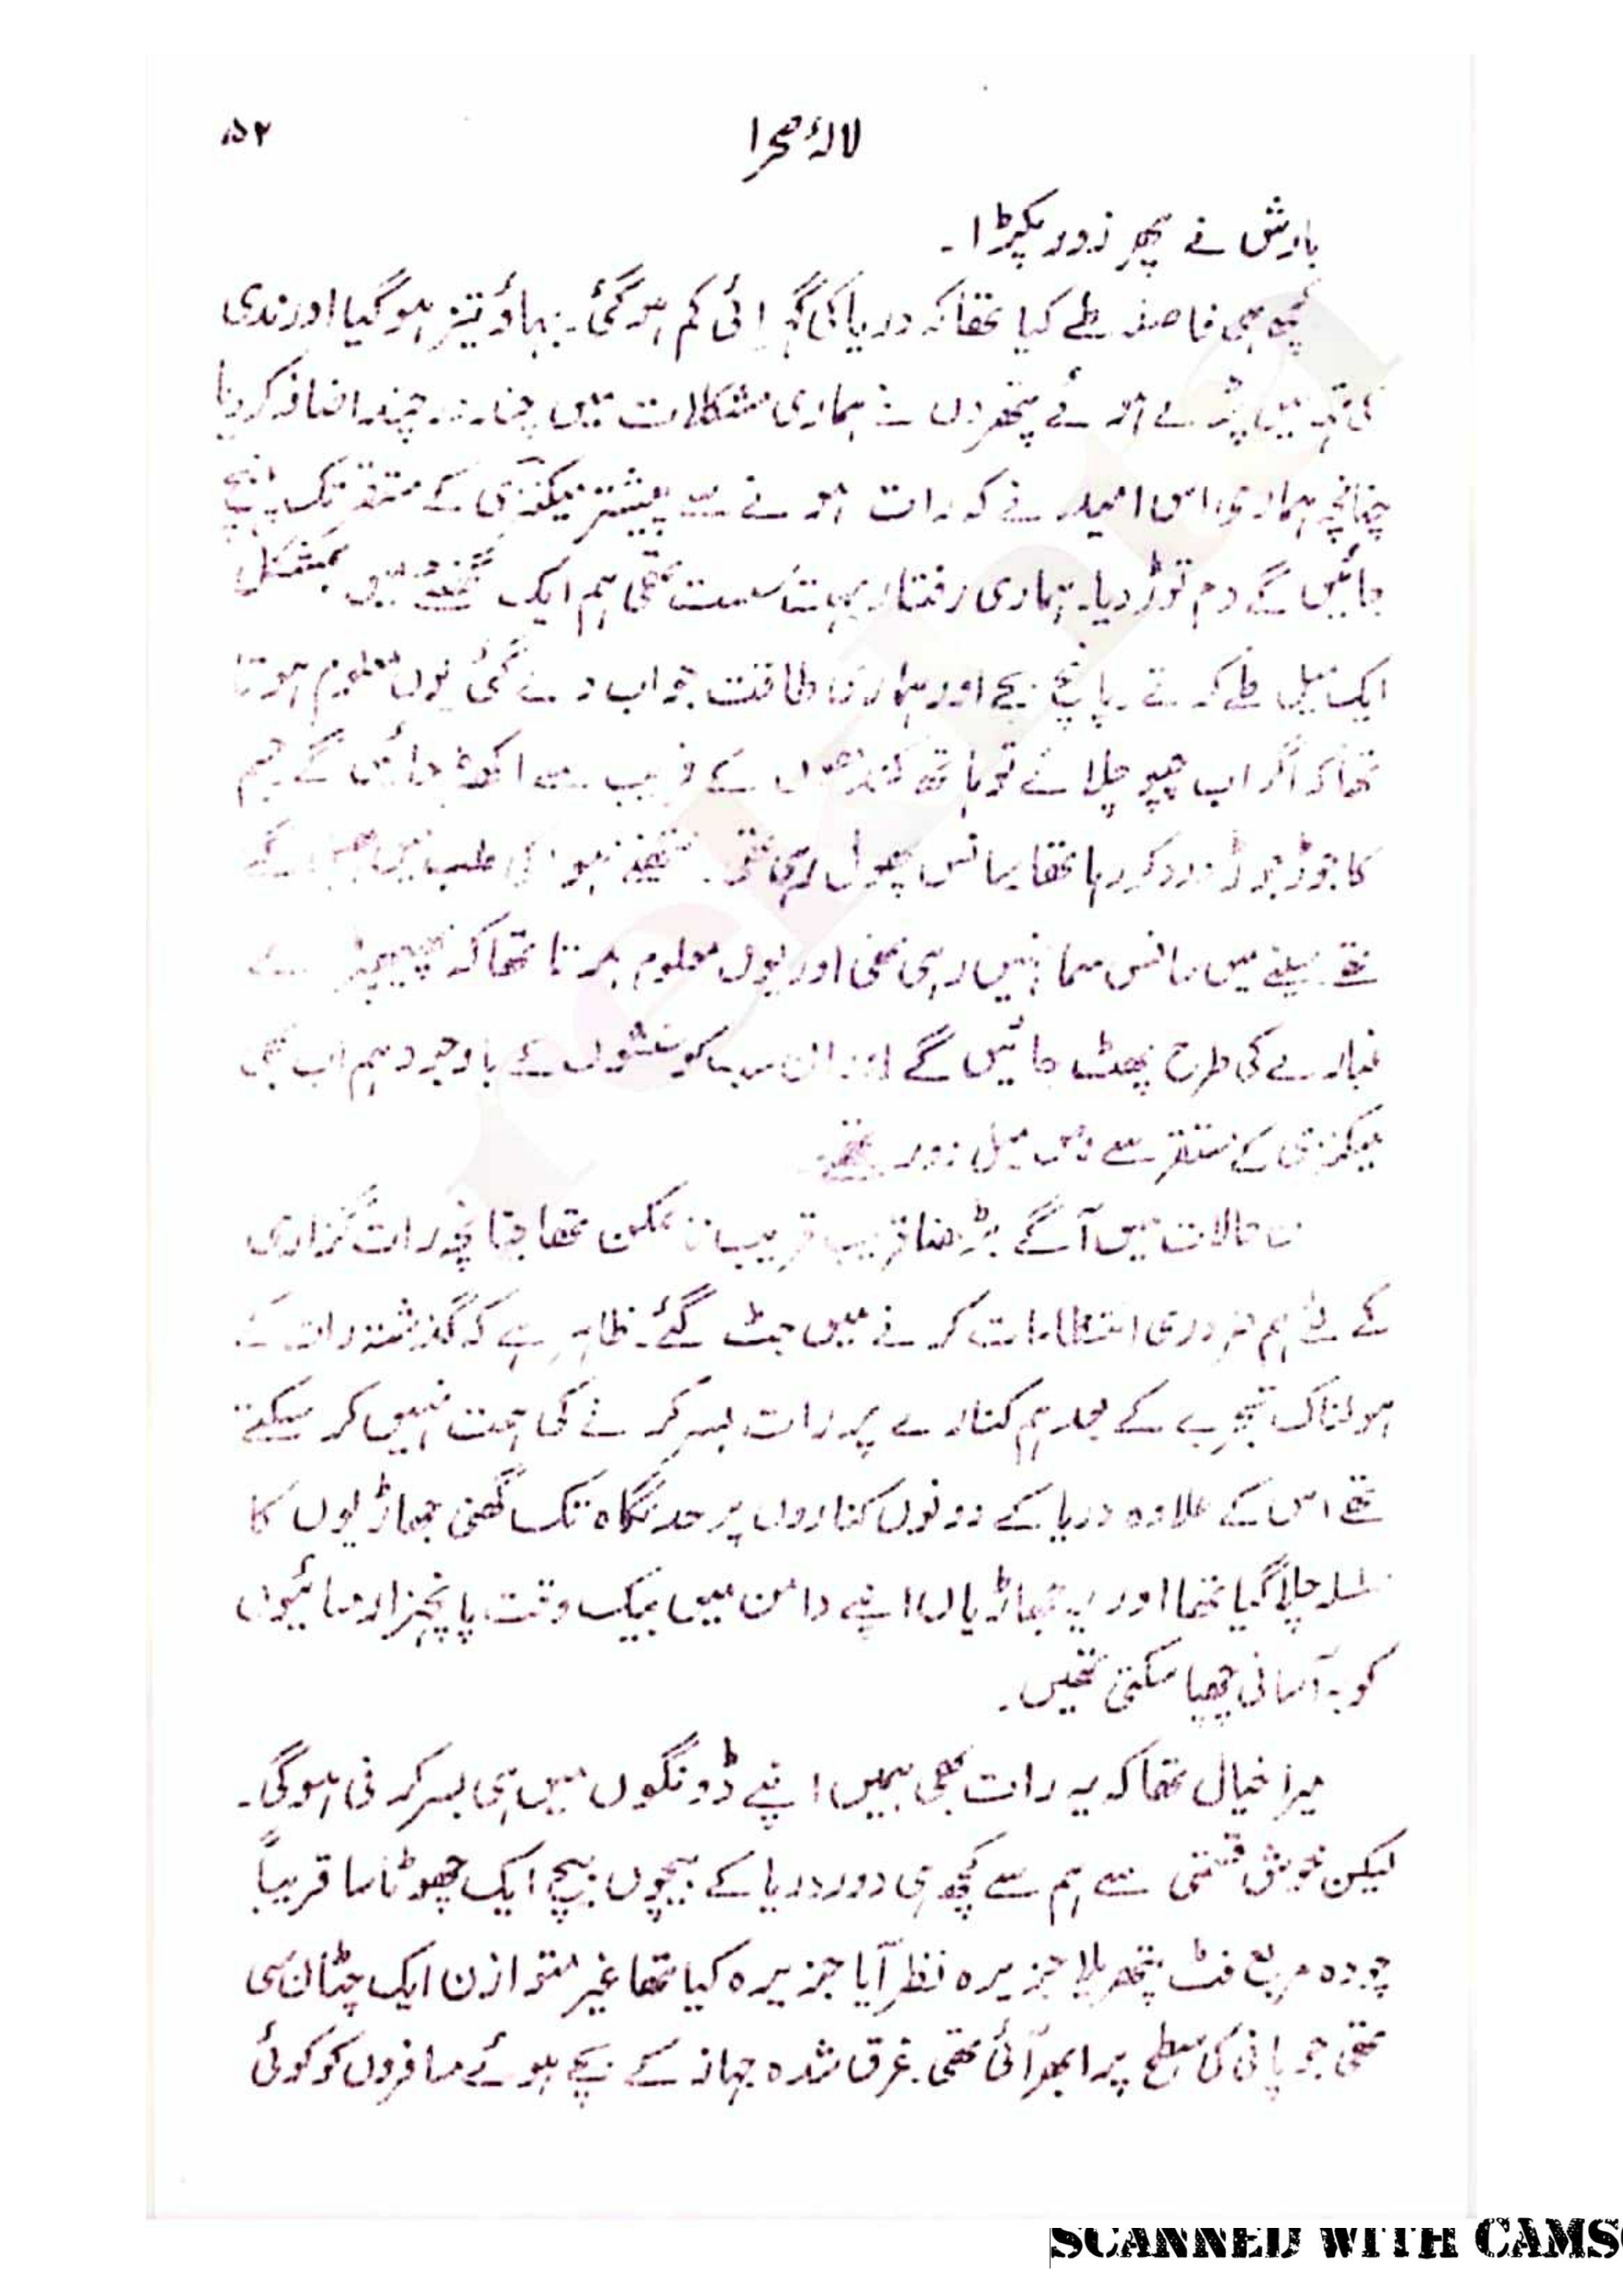 لالۂ صحرا ۵۲
بارش نے پھر زور پکڑا۔
کچھ ہی فاصلہ طے کیا تھا کہ دریا کی گہرائی کم ہو گئی۔ بہاؤ تیز ہو گیا اور ندی
کی تہہ میں پڑے ہوئے پتھروں نے ہماری مشکلات میں چند در چند اضافہ کر دیا
چنانچہ ہماری اس امید نے کہ رات ہونے سے پیشتر میکنزی کے مستقر تک پہنچ
جائیں گے دم توڑ دیا۔ ہماری رفتار بہت سست تھی ہم ایک گھنٹے میں بمشکل
ایک میل طے کرتے۔ پانچ بجے اور ہماری طاقت جواب دے گئی یوں معلوم ہوتا
تھا کہ اگر اب چپو چلائے تو ہاتھ کندھوں کے قریب سے اکھڑ جائیں گے جسم
کا جوڑ جوڑ درد کر رہا تھا سانس پھول رہی تھی۔ نتھنے ہوا کی طلب میں
تھے سینے میں سانس سما نہیں رہی تھی اور یوں معلوم ہوتا تھا کہ پھیپھڑے
غبارے کی طرح پھٹ جائیں گے اور ان سب کوششوں کے باوجود ہم اب بھی
میکنزی کے مستقر سے دس میل دور تھے۔
ان حالات میں آگے بڑھنا قریب قریب نا ممکن تھا چنانچہ رات گزاری
کے لئے ہم ضروری انتظامات کرنے میں جٹ گئے۔ ظاہر ہے کہ گذشتہ رات کے
ہولناک تجربے کے بعد ہم کنارے پر رات بسر کرنے کی ہمت نہیں کر سکتے
تھے اس کے علاوہ دریا کے دونوں کناروں پر حد نگاہ تک گھنی جھاڑیوں کا
سلسلہ چلا گیا تھا اور یہ جھاڑیاں اپنے دامن میں بیک وقت پانچہزار مسائیوں
کو بہ آسانی چھپا سکتی تھیں۔
میرا خیال تھا کہ یہ رات بھی ہمیں اپنے ڈونگوں میں ہی بسر کرنی ہو گی۔
لیکن خوش قسمتی سے ہم سے کچھ ہی دور دریا کے بیچوں بیچ ایک چھوٹا سا قریباً
چودہ مربع فٹ پتھریلا جزیرہ نظر آیا جزیرہ کیا تھا غیر متوازن ایک چٹان سی
تھی جو پانی کی سطح پر ابھر آئی تھی۔ غرق شدہ جہاز کے بچے ہوئے مسافروں کو کوئی
SCANNED WITH CAMS